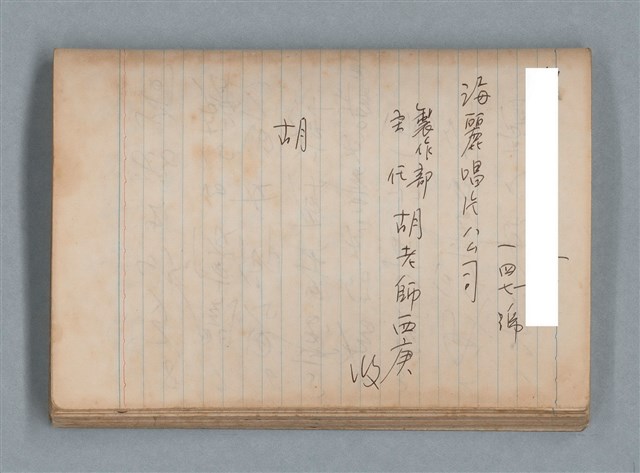 一四七號
海麗唱片公司
製作部
主任
胡老師西庚
收
胡